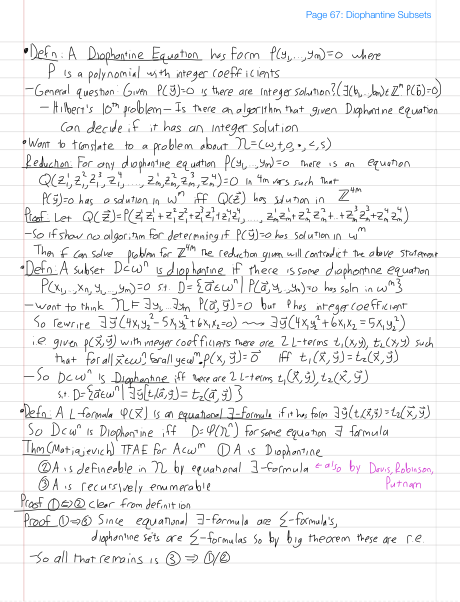 Page 67: Diophantine Subsets
• Defn: A Diophantine Equation has form P(y₁,...,yₘ)=0 where
P is a polynomial with integer coefficients
– General question: Given P(y⃗)=0 is there are integer solution? (∃(b₁,...,bₘ)∈ℤᵐ P(b⃗)=0)
– Hilbert's 10th problem – Is there an algorithm that given Diophantine equation
can decide if it has an integer solution
• Want to translate to a problem about 𝒩=(ω,+,0,•,<,s)
Reduction: For any diophantine equation P(y₁,...,yₘ)=0 there is an equation
Q(z₁¹,z₁²,z₁³,z₁⁴,...,zₘ¹,zₘ²,zₘ³,zₘ⁴)=0 in 4m vars such that
P(y⃗)=0 has a solution in ωᵐ iff Q(z⃗) has solution in ℤ⁴ᵐ
Proof: Let Q(z⃗)=P(z₁¹z₁¹+z₁²z₁²+z₁³z₁³+z₁⁴z₁⁴,...,zₘ¹zₘ¹+zₘ²zₘ²+zₘ³zₘ³+zₘ⁴zₘ⁴)
– So if show no algorithm for determining if P(y⃗)=0 has solution in ωᵐ
Then if can solve problem for ℤ⁴ᵐ the reduction given will contradict the above statement
• Defn: A subset D⊂ωⁿ is diophantine if there is some diophantine equation
P(x₁,...,xₙ,y₁,...,yₘ)=0 s.t. D={a⃗∈ωⁿ | P(a⃗,y₁,...,yₘ)=0 has soln in ωᵐ}
– want to think 𝒩⊨∃y₁...∃yₘ P(a⃗,y⃗)=0 but P has integer coefficient
So rewrite ∃y⃗(4x₁y₂²–5x₁y₁²+6x₁x₂=0) ⟿ ∃y⃗(4x₁y₂²+6x₁x₂=5x₁y₁²)
i.e given p(x⃗,y⃗) with integer coefficients there are 2 L-terms t₁(x,y), t₂(x,y) such
that for all x⃗∈ωⁿ, for all y∈ωᵐ, p(x,y)=0⃗ iff t₁(x⃗,y⃗)=t₂(x⃗,y⃗)
– So D⊂ωⁿ is Diophantine iff there are 2 L-terms t₁(x⃗,y⃗), t₂(x⃗,y⃗)
s.t. D={a⃗∈ωⁿ | ∃y⃗(t₁(a⃗,y⃗)=t₂(a⃗,y⃗))}
• Defn: A L-formula φ(x⃗) is an equational ∃-formula if it has form ∃y⃗(t₁(x⃗,y⃗)=t₂(x⃗,y⃗))
So D⊂ωⁿ is Diophantine iff D=φ(𝒩ⁿ) for some equation ∃ formula
Thm (Matiajevich) TFAE for A⊂ωᵐ ① A is Diophantine
② A is defineable in 𝒩 by equational ∃-formula ← also by Davis, Robinson,
③ A is recursively enumerable Putnam
Proof ①⇔② clear from definition
Proof ①⇒③ Since equational ∃-formula are Σ-formula's,
diophantine sets are Σ-formulas so by big theorem these are r.e
– So all that remains is ③ ⇒ ①/②